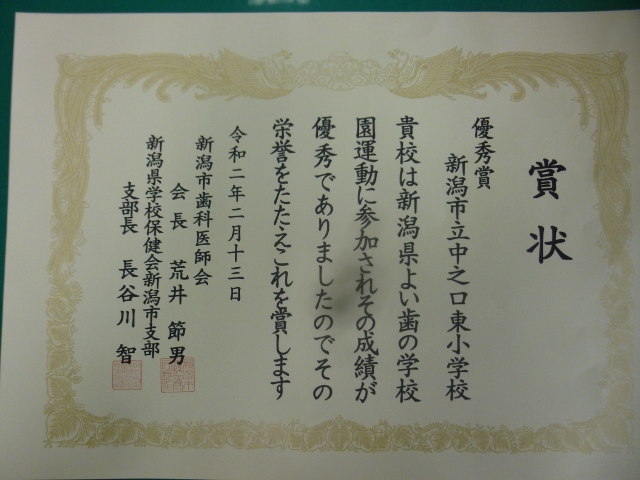 賞状
優秀賞
新潟市立中之口東小学校
貴校は新潟県よい歯の学校
園運動に参加されその成績が
優秀でありましたのでその
栄誉をたたえこれを賞します
令和二年二月十三日
新潟市歯科医師会
会長 荒井節男
新潟県学校保健会新潟市支部
支部長 長谷川智